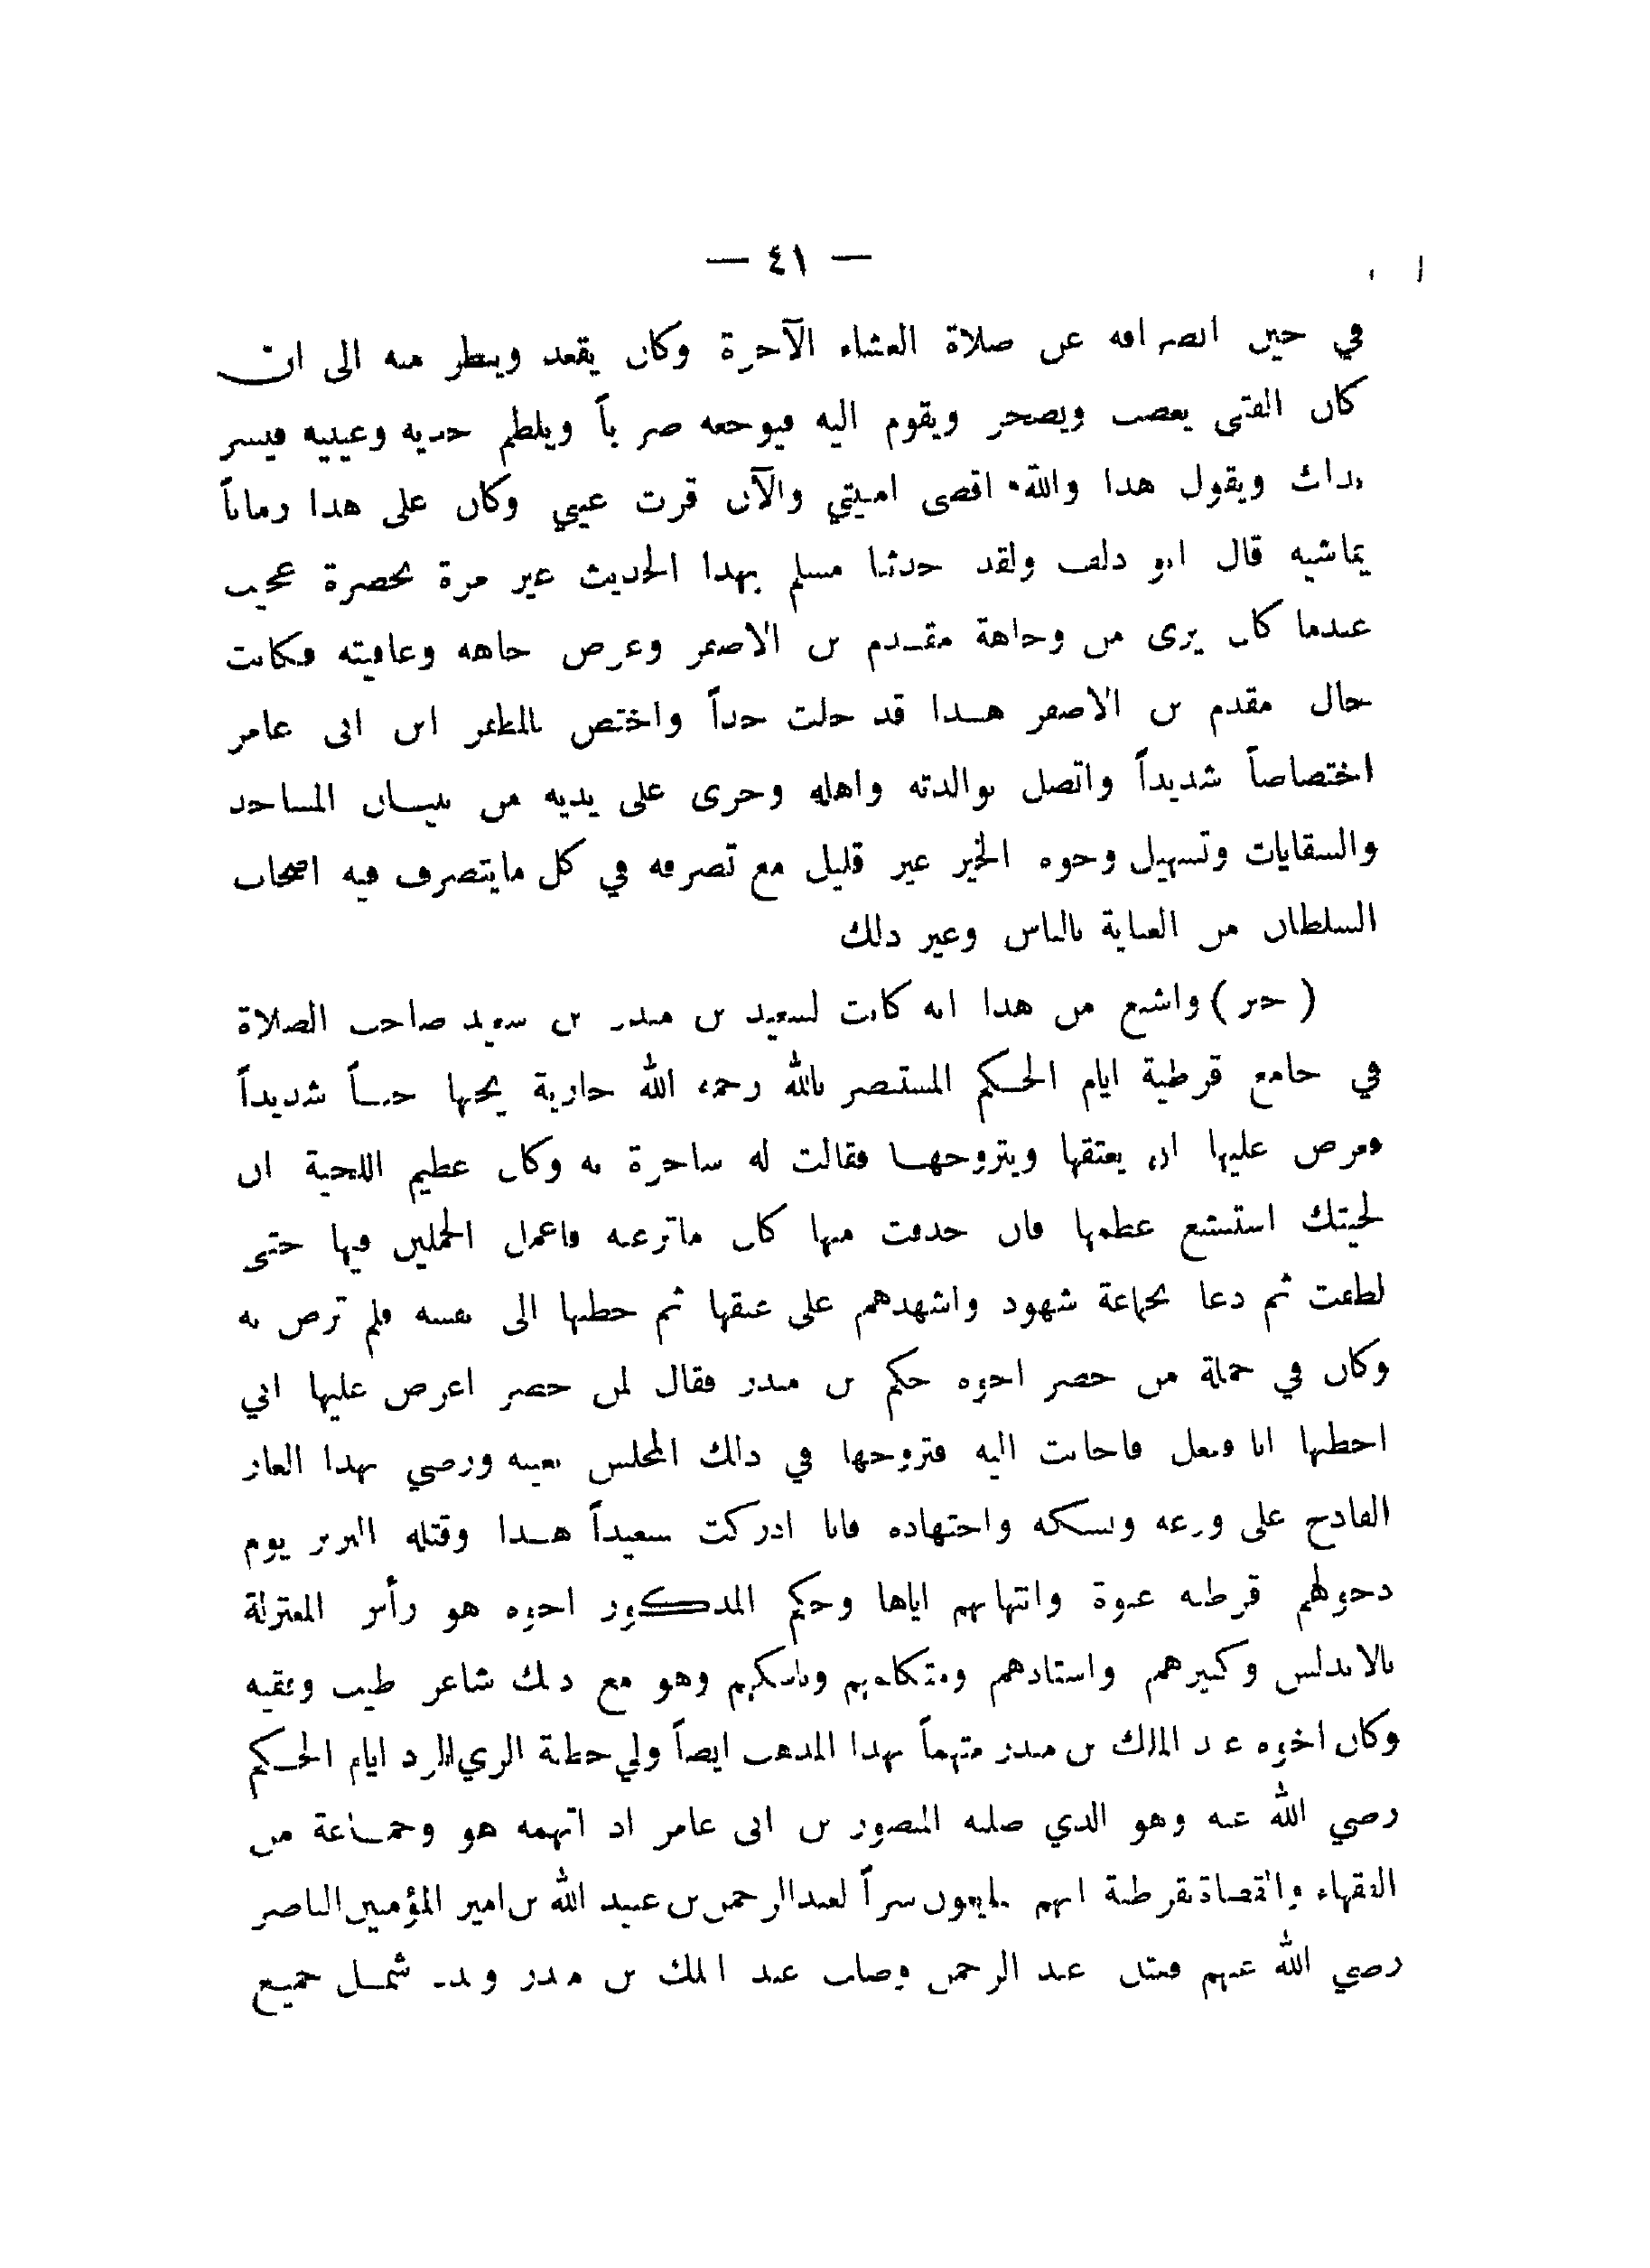 — ٤١ —
في حين انصرافه عن صلاة العشاء الآخرة وكان يقعد وينظر منه الى ان
كان الفتى يغضب ويضجر ويقوم اليه فيوجعه ضرباً ويلطم خديه وعينيه فيسر
بذلك ويقول هذا والله اقصى امنيتي والآن قرت عيني وكان على هذا زماناً
يماشيه قال ابو دلف ولقد حدثنا مسلم بهذا الحديث غير مرة بحضرة عجيب
عندما كان يرى من وجاهة مقدم بن الاصفر وعرض جاهه وعافيته فكانت
حال مقدم بن الاصفر هذا قد جلت جداً واختص بالمظفر ابن ابى عامر
اختصاصاً شديداً واتصل بوالدته واهله وجرى على يديه من بنيان المساجد
والسقايات وتسهيل وجوه الخير غير قليل مع تصرفه في كل مايتصرف فيه اصحاب
السلطان من العناية بالناس وغير ذلك
( خبر ) واشنع من هذا انه كانت لسعيد بن منذر بن سعيد صاحب الصلاة
في جامع قرطبة ايام الحكم المستنصر بالله رحمه الله جارية يحبها حباً شديداً
فعرض عليها ان يعتقها ويتزوجها فقالت له ساخرة به وكان عظيم اللحية ان
لحيتك استبشع عظمها فان حذفت منها كان ماترغبه فاعمل الجلمين فيها حتى
لطفت ثم دعا بجماعة شهود واشهدهم على عتقها ثم خطبها الى نفسه فلم ترض به
وكان في جملة من حضر اخوه حكم بن منذر فقال لمن حضر اعرض عليها اني
اخطبها انا ففعل فاجابت اليه فتزوجها في ذلك المجلس بعينه ورضي بهذا العار
الفادح على ورعه ونسكه واجتهاده فانا ادركت سعيداً هذا وقتله البربر يوم
دخولهم قرطبه عنوة وانتهابهم اياها وحكم المذكور اخوه هو رأس المعتزلة
بالاندلس وكبيرهم واستاذهم ومتكلمهم وناسكهم وهو مع ذلك شاعر طيب وفقيه
وكان اخوه عبد الملك بن منذر متهماً بهذا المذهب ايضاً ولي خطبة الري الرد ايام الحكم
رضي الله عنه وهو الذي صلبه المنصور بن ابى عامر اذ اتهمه هو وجماعة من
الفقهاء والقضاة بقرطبة انهم يبايعون سراً لعبد الرحمن بن عبيد الله بن امير المؤمنين الناصر
رضي الله عنهم فقتل عبد الرحمن وصلب عبد الملك بن منذر وبدد شمل جميع